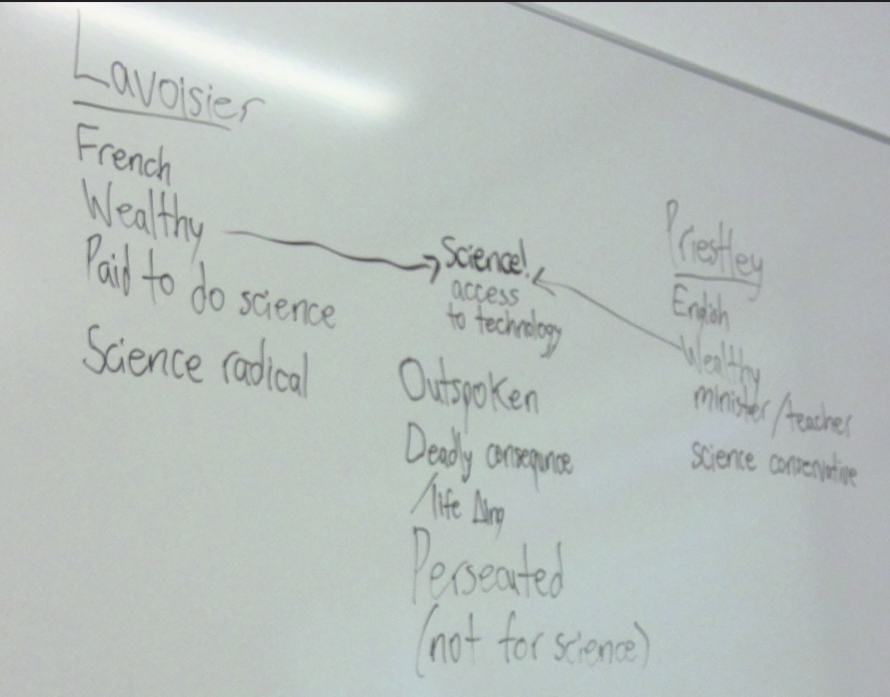 Lavoisier
French
Wealthy
Paid to do science
Science radical
Science!
access
to technology
Outspoken
Deadly consequnce
/life Δing
Persecuted
(not for science)
Priestley
English
Wealthy
minister/teacher
science conservative